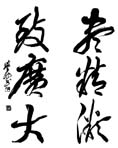 盡精微
致廣大